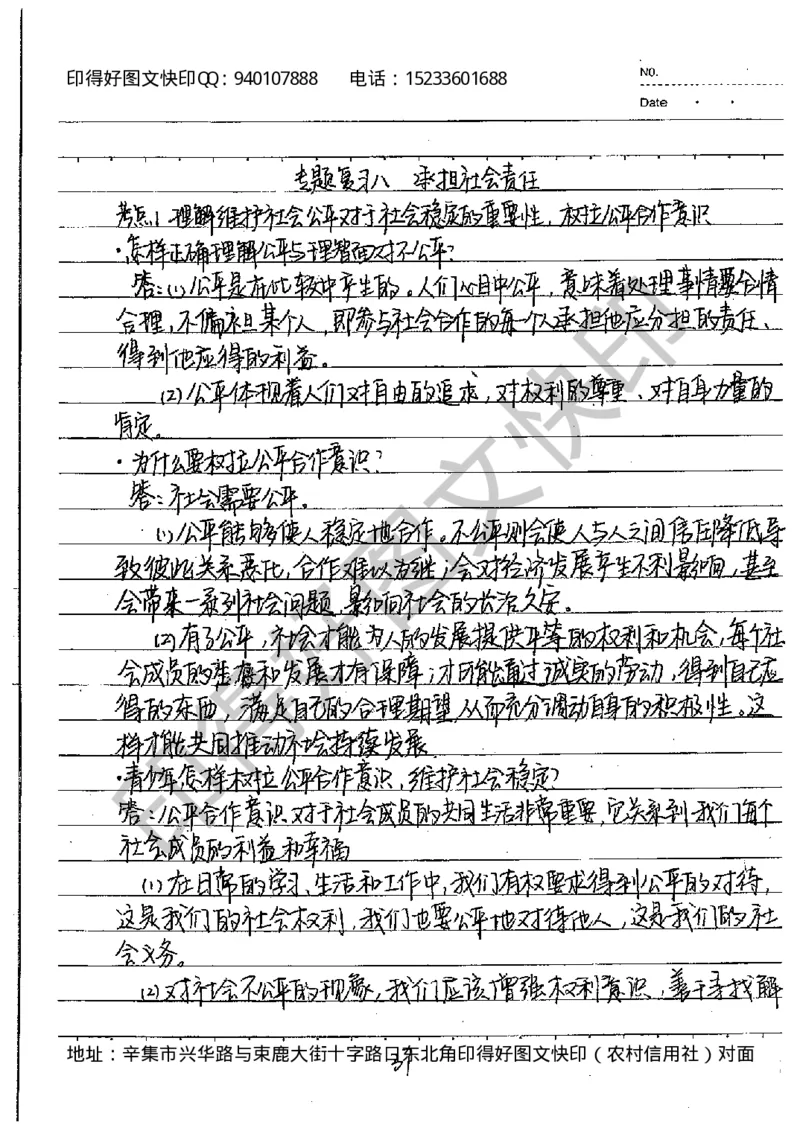 印得好图文快印QQ：940107888 电话：15233601688
NO.
Date
专题复习八 承担社会责任
考点1 理解维护社会公平对于社会稳定的重要性，树立公平合作意识
·怎样正确理解公平与理智面对不公平？
答：(1)公平是在比较中产生的。人们心目中公平，意味着处理事情要合情
合理，不偏袒某个人，即参与社会合作的每一个人承担他应分担的责任、
得到他应得的利益。
(2)公平体现着人们对自由的追求，对权利的尊重、对自身力量的
肯定。
·为什么要树立公平合作意识？
答：社会需要公平。
(1)公平能够使人稳定地合作。不公平则会使人与人之间信任降低导
致彼此关系恶化，合作难以为继；会对经济发展产生不利影响，甚至
会带来一系列社会问题，影响社会的长治久安。
(2)有了公平，社会才能为人的发展提供平等的权利和机会，每个社
会成员的生存和发展才有保障；才可能通过诚实的劳动，得到自己应
得的东西，满足自己的合理期望从而充分调动自身的积极性。这
样才能共同推动社会持续发展
·青少年怎样树立公平合作意识，维护社会稳定？
答：公平合作意识对于社会成员的共同生活非常重要，它关系到我们每个
社会成员的利益和幸福
(1)在日常的学习、生活和工作中，我们有权要求得到公平的对待，
这是我们的社会权利，我们也要公平地对待他人，这是我们的社
会义务。
(2)对社会不公平的现象，我们应该增强权利意识，善于寻找解
地址：辛集市兴华路与束鹿大街十字路口东北角印得好图文快印（农村信用社）对面
印得好图文快印